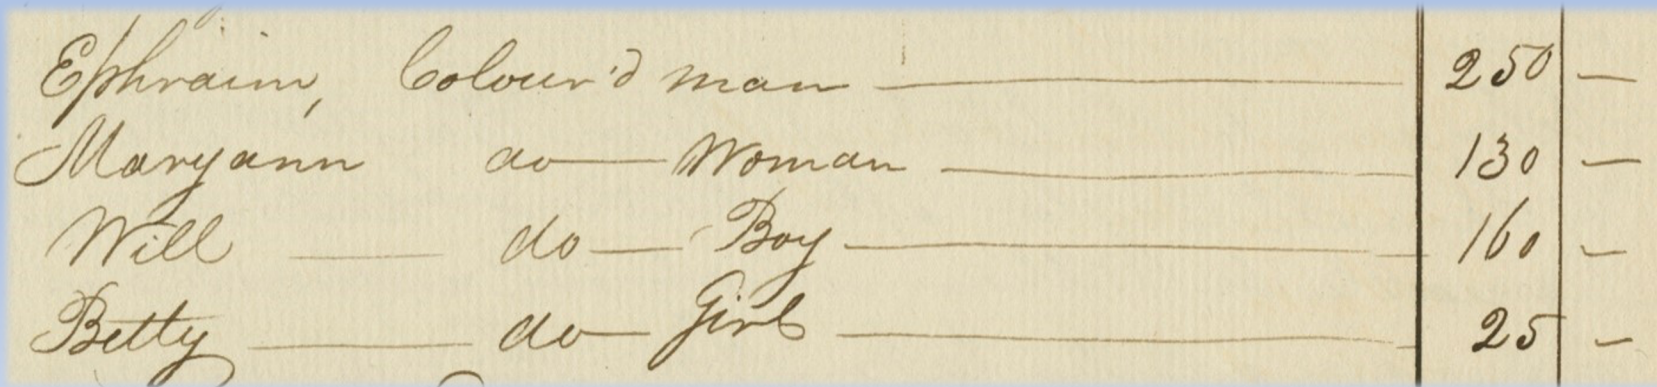 Ephraim, Colour'd man — 250 —
Maryann do — Woman — 130 —
Will — do — Boy — 160 —
Betty — do — Girl — 25 —